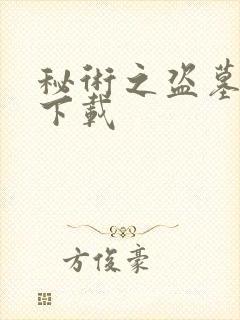 秘術之盜墓
下載
方俊豪